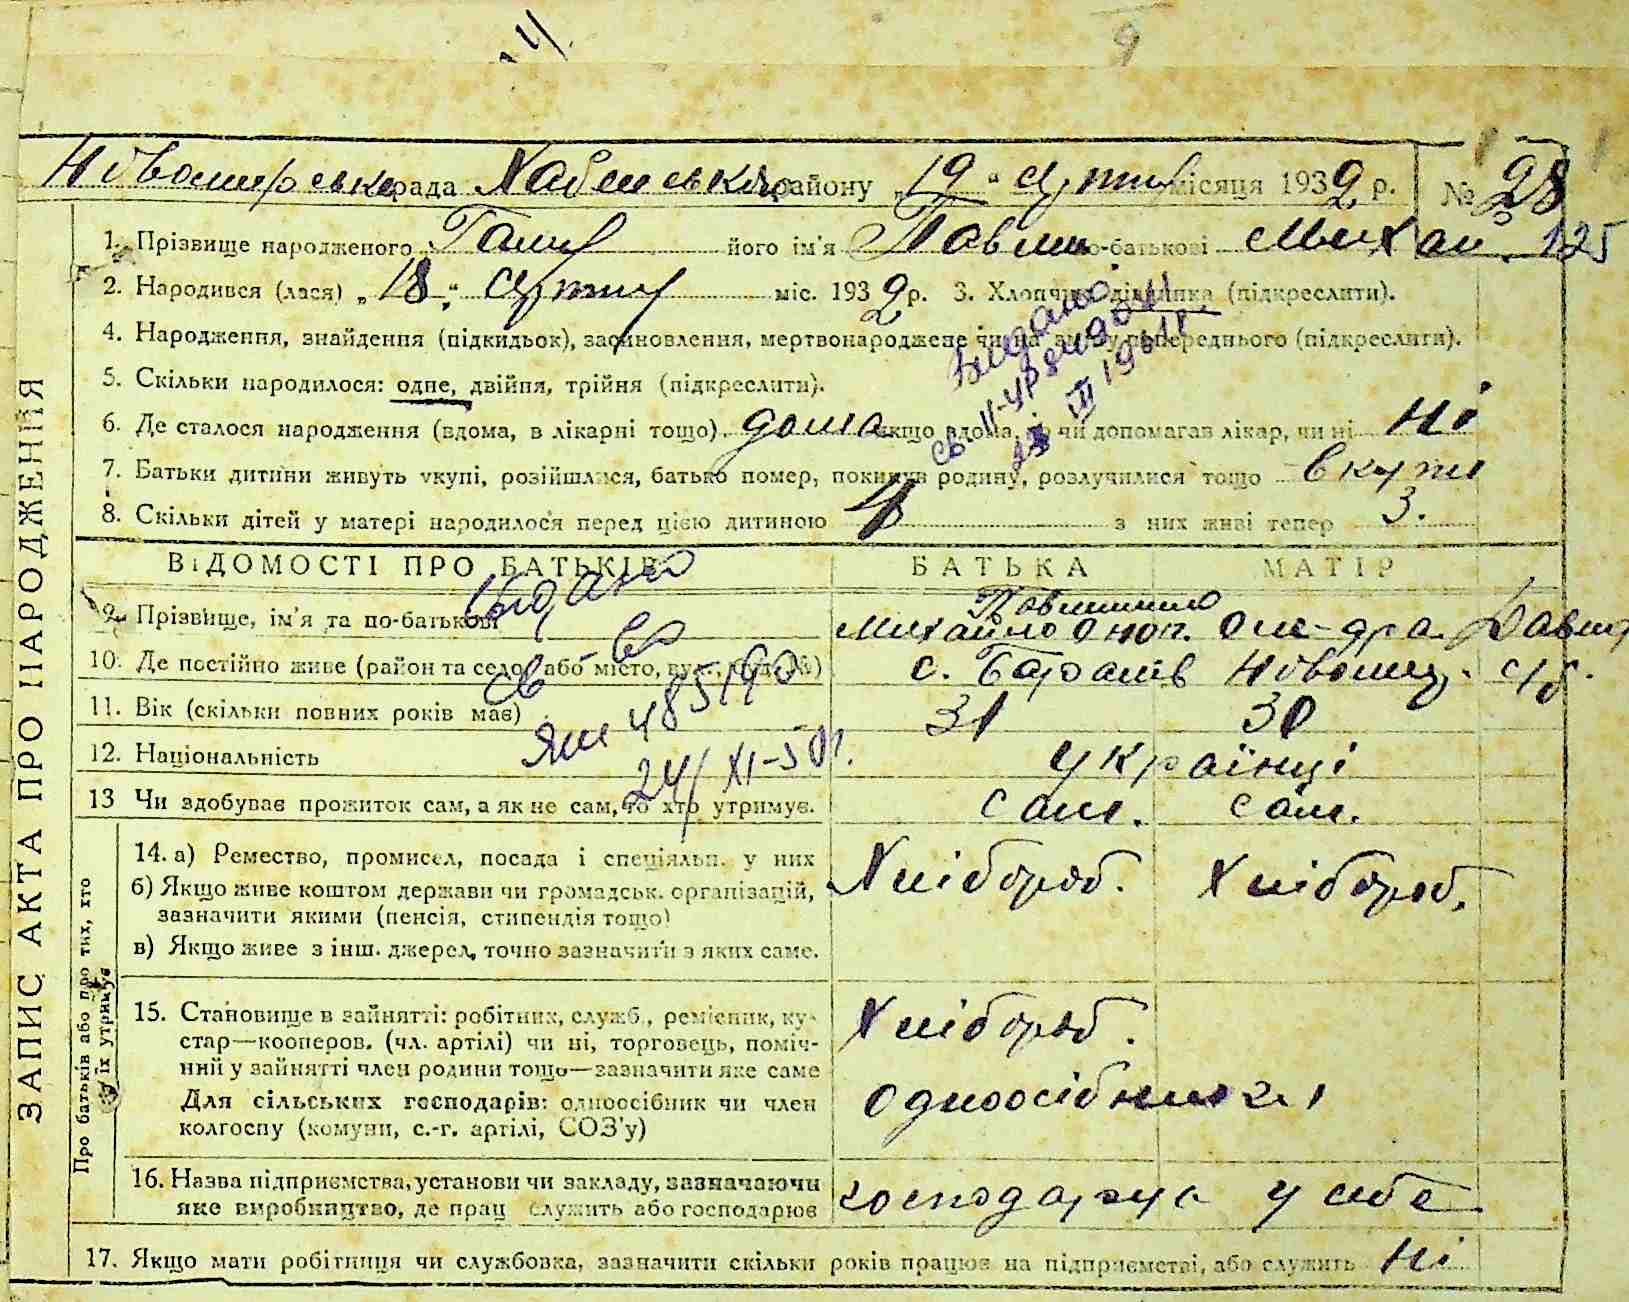 9
рада Хабенського району „19“ лютого місяця 1932 р. № 28
1. Прізвище народженого його ім'я по-батькові Михай. 125
2. Народився (лася) „18“ міс. 1932 р. 3. Хлопчик, дівчинка (підкреслити).
4. Народження, знайдення (підкидьок), засиновлення, мертвонароджене чи на зміну попереднього (підкреслити).
5. Скільки народилося: одне, двійня, трійня (підкреслити).
6. Де сталося народження (вдома, в лікарні тощо) дома якщо вдома, чи допомагав лікар, чи ні Ні
7. Батьки дитини живуть укупі, розійшлися, батько помер, покинув родину, розлучилися тощо вкупі
8. Скільки дітей у матері народилося перед цією дитиною 4 з них живі тепер 3.
ВІДОМОСТІ ПРО БАТЬКІВ БАТЬКА МАТІР
9. Прізвище, ім'я та по-батькові Михайло Оле-дра Давид
10. Де постійно живе (район та село, або місто, вул., буд. №) с.
11. Вік (скільки повних років має) 31 30
12. Національність українці
13 Чи здобуває прожиток сам, а як не сам, то хто утримує. сам. сам.
14. а) Ремество, промисел, посада і спеціяльн. у них Хлібороб. Хлібороб.
б) Якщо живе коштом держави чи громадськ. організацій,
зазначити якими (пенсія, стипендія тощо)
в) Якщо живе з інш. джерел, точно зазначити з яких саме.
15. Становище в зайнятті: робітник, служб., ремісник, ку-
стар—кооперов. (чл. артілі) чи ні, торговець, поміч-
ний у зайнятті член родини тощо—зазначити яке саме
Хлібороб.
Для сільських господарів: одноосібник чи член
колгоспу (комуни, с.-г. артілі, СОЗ'у)
одноосібники
16. Назва підприємства, установи чи закладу, зазначаючи
яке виробництво, де прац служить або господарює
господарює у себе
17. Якщо мати робітниця чи службовка, зазначити скільки років працює на підприємстві, або служить Ні
ЗАПИС АКТА ПРО НАРОДЖЕННЯ
Про батьків або про тих, хто
їх утримує
Видано
св-во
24/XI-50 г.